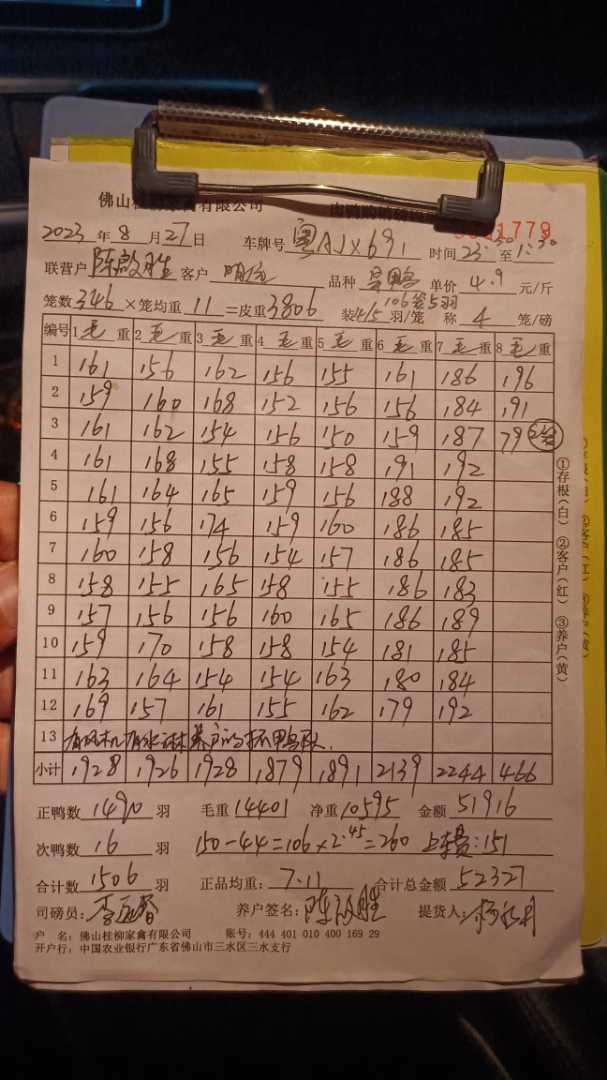 佛山桂柳家禽有限公司
1779
2023 年 8 月 27 日 车牌号 粤AJX691 时间 23:30 至 1:30
联营户 陈啟胜 客户 品种 单价 4.9 元/斤
106笼5羽
笼数 346 ×笼均重 11 =皮重 3806 装 4/5 羽/笼 称 4 笼/磅
编号 1 毛 重 2 毛 重 3 毛 重 4 毛 重 5 毛 重 6 毛 重 7 毛 重 8 毛 重
1 161 156 162 156 155 161 186 196
2 159 160 168 152 156 156 184 191
3 161 162 154 156 150 159 187 79 2笼
4 161 168 155 158 158 191 192
5 161 164 165 159 156 188 192
6 159 156 174 159 160 186 185
7 160 158 156 154 157 186 185
8 158 155 165 158 155 186 183
9 157 156 156 160 165 186 189
10 159 170 158 158 154 181 185
11 163 164 154 154 163 180 184
12 169 157 161 155 162 179 192
13
小计 1928 1926 1928 1879 1891 2139 2244 466
正鸭数 1490 羽 毛重 14401 净重 10595 金额 51916
次鸭数 16 羽 150-44=106×2.45=260 上车费:151
合计数 1506 羽 正品均重: 7.11 合计总金额 52327
司磅员: 养户签名: 陈啟胜 提货人:
户 名: 佛山桂柳家禽有限公司 账号: 444 401 010 400 169 29
开户行: 中国农业银行广东省佛山市三水区三水支行
①存根(白) ②客户(红) ③养户(黄)